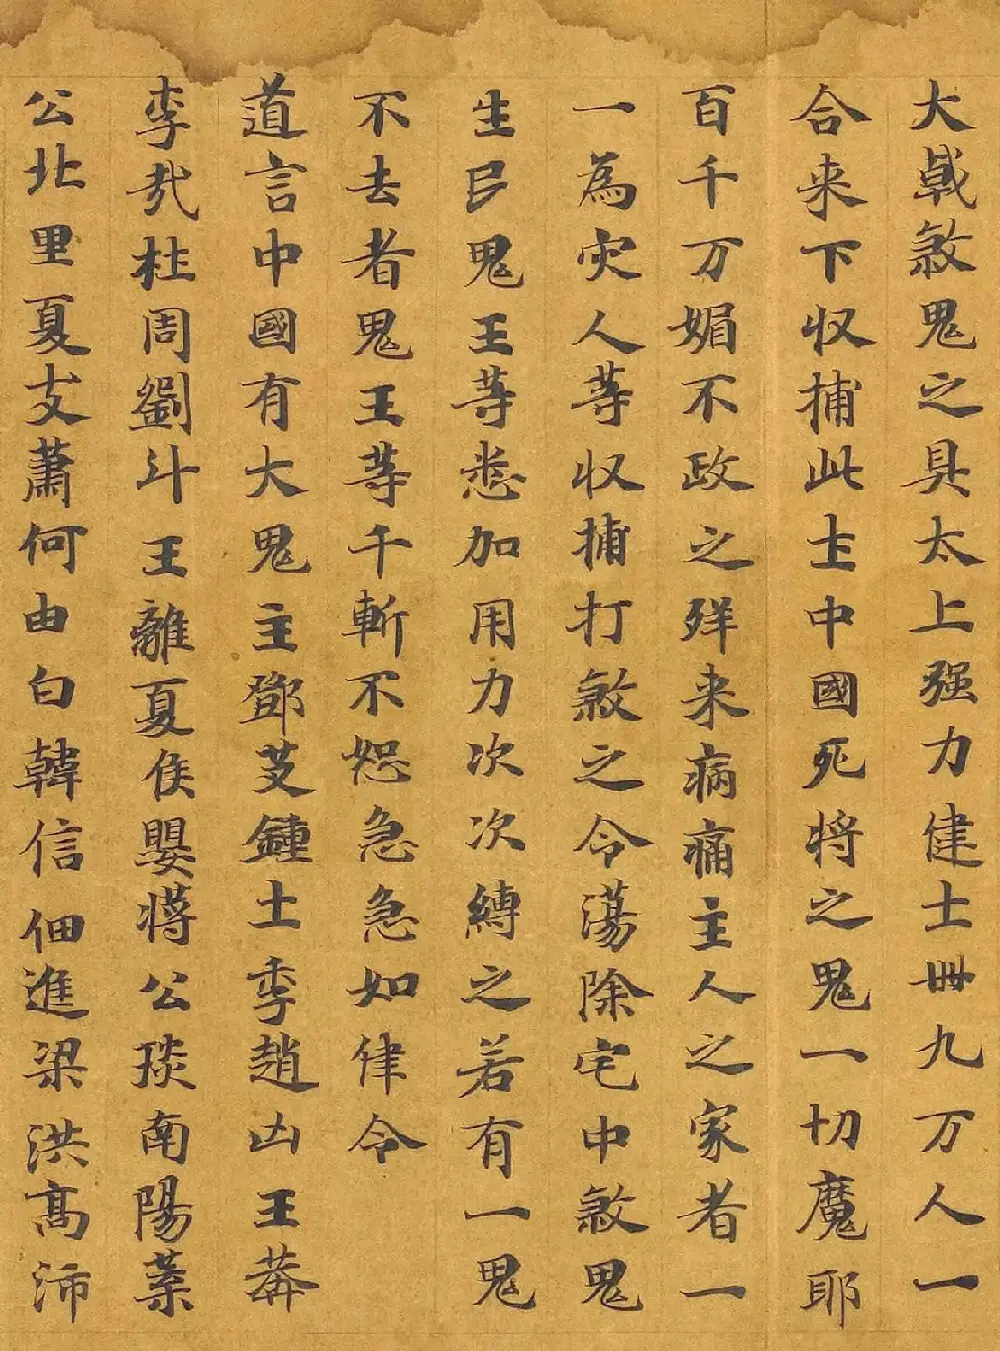 大戟煞鬼之具太上强力健士卌九万人一
合来下収捕此主中國死将之鬼一切魔耶
百千万媚不政之鲜来病痛主人之家者一
一為灾人等収捕打煞之令蕩除宅中煞鬼
生已鬼王等悉加用力次次縛之若有一鬼
不去者鬼王等千斬不恕急急如律令
道言中國有大鬼主鄧艾鍾士季趙山王莽
李敖杜周劉斗王離夏侯嬰蔣公琰南陽葉
公北里夏支蕭何由白韓信佃進梁洪髙沛